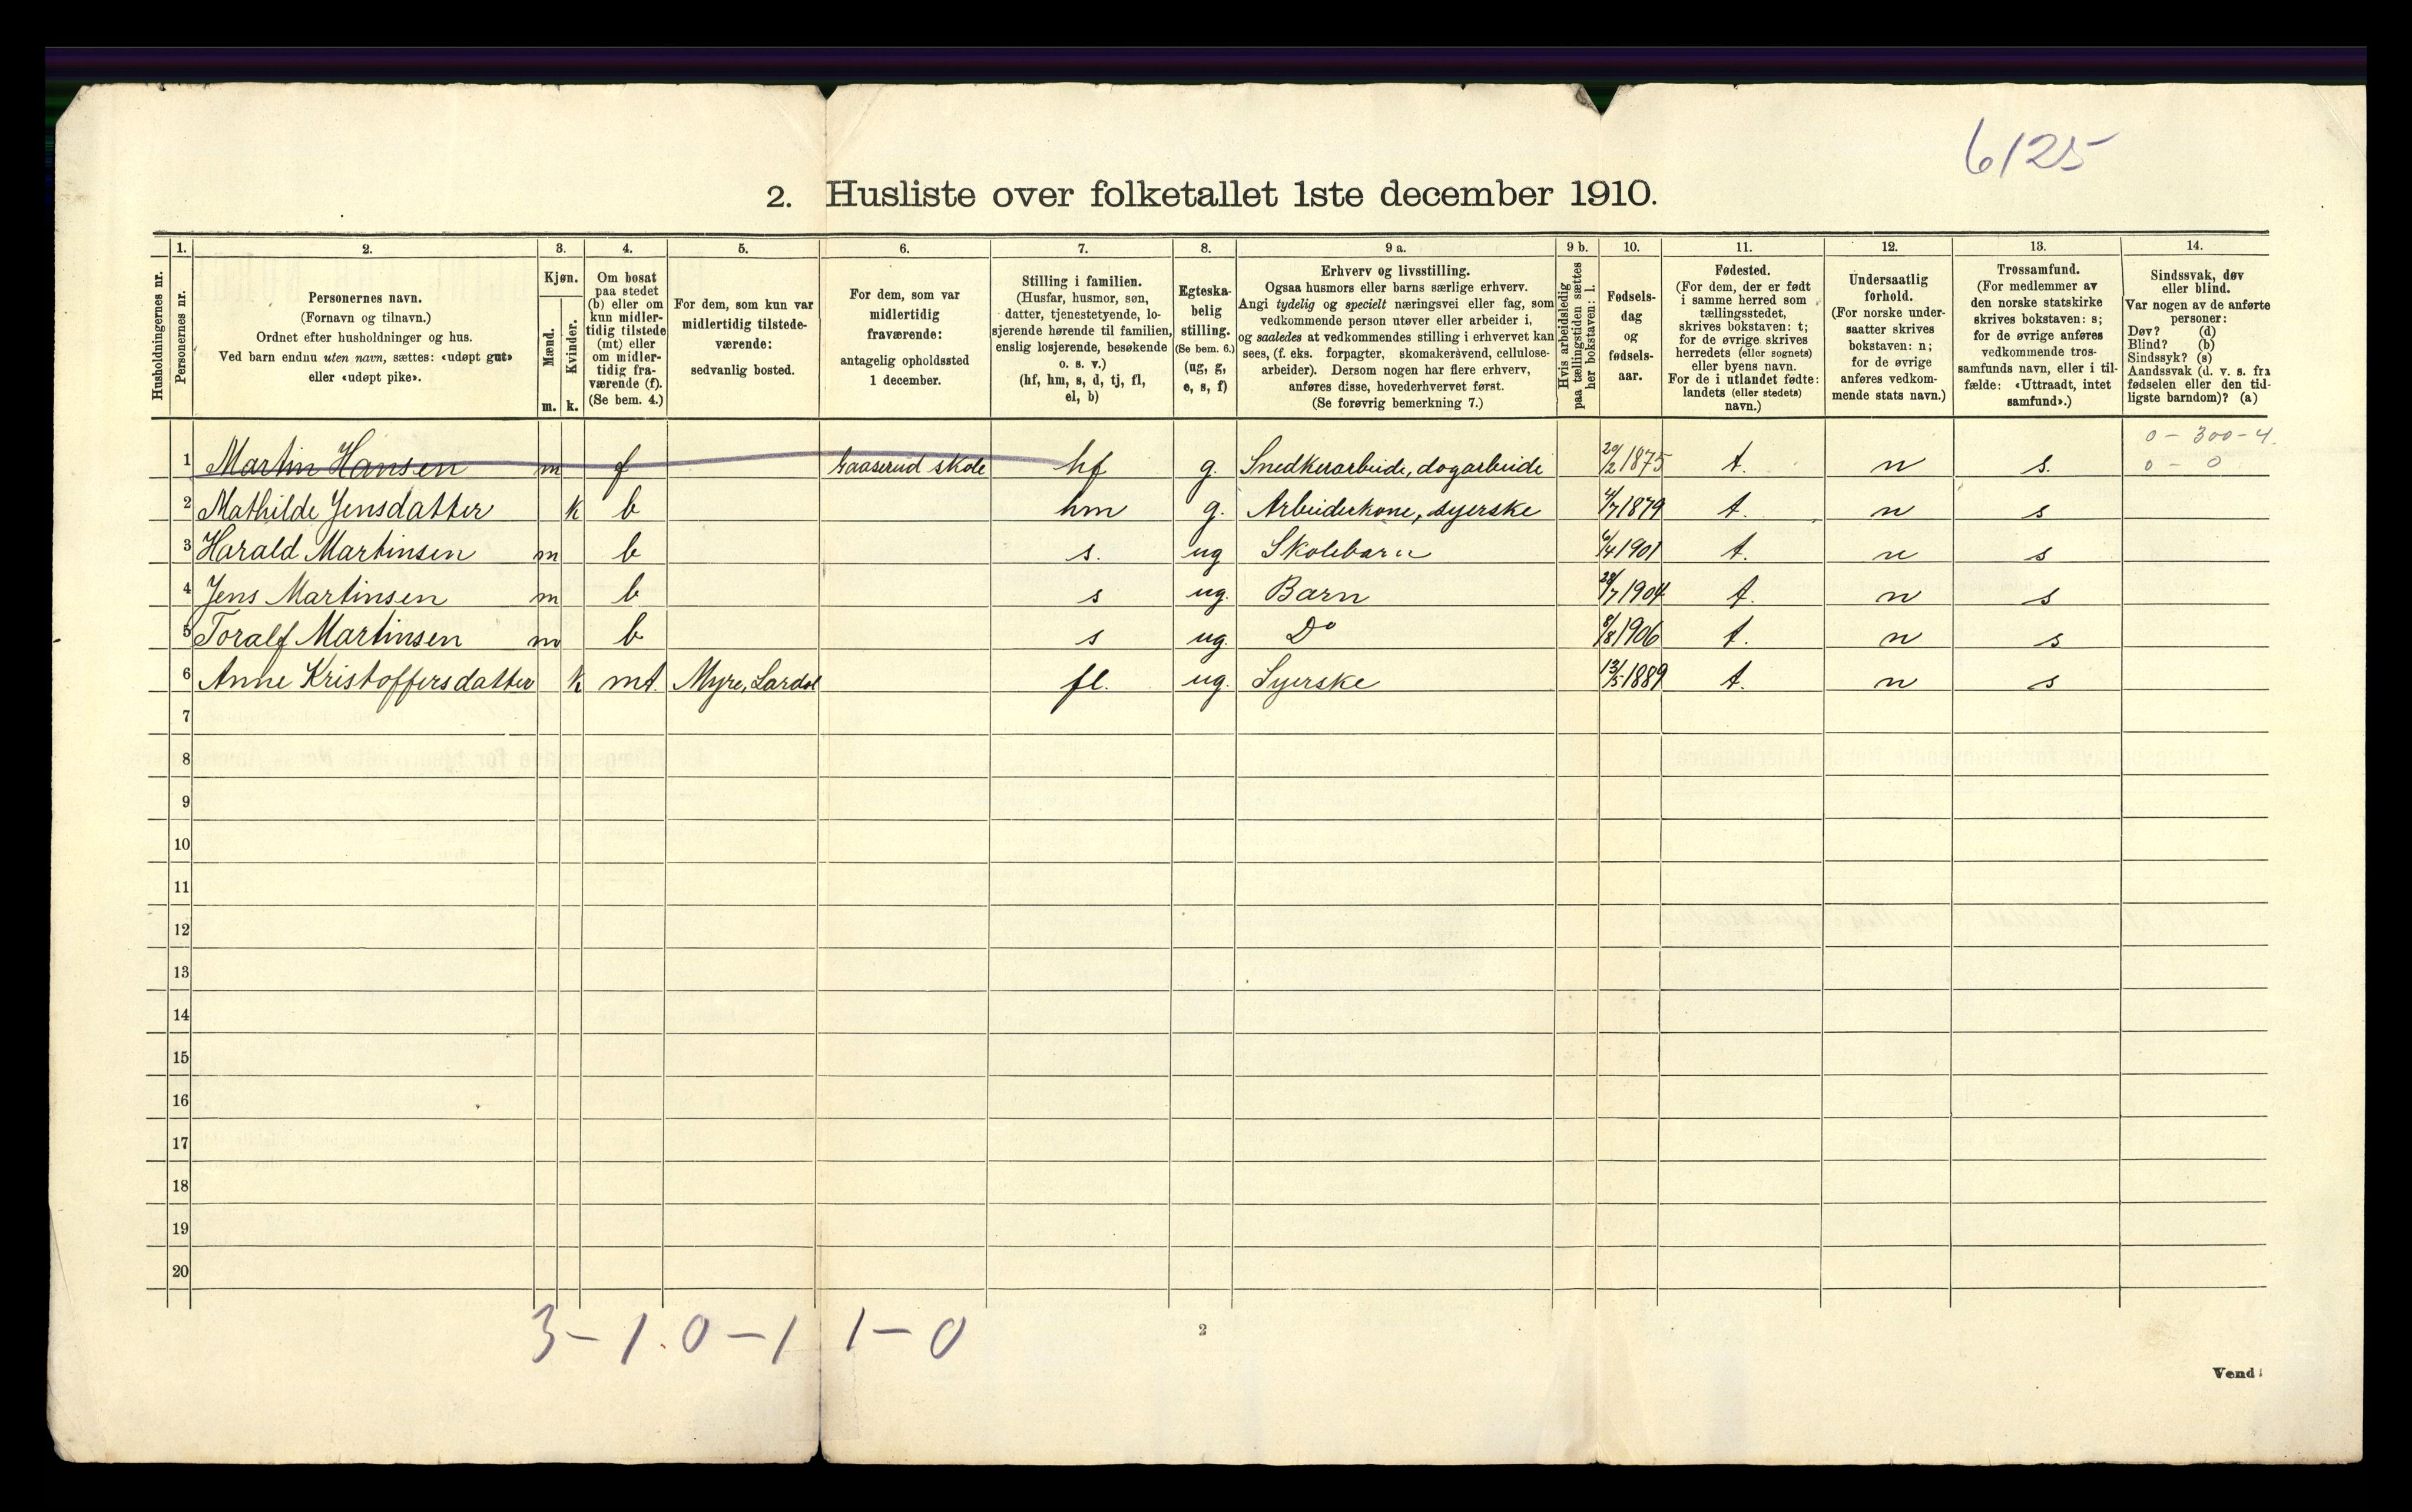 6/25
2. Husliste over folketallet 1ste december 1910.
Husholdningernes nr.
1.
Personernes nr.
2.
Personernes navn.
(Fornavn og tilnavn.)
Ordnet efter husholdninger og hus.
Ved barn endnu uten navn, sættes: «udøpt gut»
eller «udøpt pike».
3.
Kjøn.
Mænd.
m.
Kvinder.
k.
4.
Om bosat
paa stedet
(b) eller om
kun midler-
tidig tilstede
(mt) eller
om midler-
tidig fra-
værende (f).
(Se bem. 4.)
5.
For dem, som kun var
midlertidig tilstede-
værende:
sedvanlig bosted.
6.
For dem, som var
midlertidig
fraværende:
antagelig opholdssted
1 december.
7.
Stilling i familien.
(Husfar, husmor, søn,
datter, tjenestetyende, lo-
sjerende hørende til familien,
enslig losjerende, besøkende
o. s. v.)
(hf, hm, s, d, tj, fl,
el, b)
8.
Egteska-
belig
stilling.
(Se bem. 6.)
(ug, g,
e, s, f)
9 a.
Erhverv og livsstilling.
Ogsaa husmors eller barns særlige erhverv.
Angi tydelig og specielt næringsvei eller fag, som
vedkommende person utøver eller arbeider i,
og saaledes at vedkommendes stilling i erhvervet kan
sees, (f. eks. forpagter, skomakersvend, cellulose-
arbeider). Dersom nogen har flere erhverv,
anføres disse, hovederhvervet først.
(Se forøvrig bemerkning 7.)
9 b.
Hvis arbeidsledig
paa tællingstiden sættes
her bokstaven: l.
10.
Fødsels-
dag
og
fødsels-
aar.
11.
Fødested.
(For dem, der er født
i samme herred som
tællingsstedet,
skrives bokstaven: t;
for de øvrige skrives
herredets (eller sognets)
eller byens navn.
For de i utlandet fødte:
landets (eller stedets)
navn.)
12.
Undersaatlig
forhold.
(For norske under-
saatter skrives
bokstaven: n;
for de øvrige
anføres vedkom-
mende stats navn.)
13.
Trossamfund.
(For medlemmer av
den norske statskirke
skrives bokstaven: s;
for de øvrige anføres
vedkommende tros-
samfunds navn, eller i til-
fælde: «Uttraadt, intet
samfund».)
14.
Sindssvak, døv
eller blind.
Var nogen av de anførte
personer:
Døv? (d)
Blind? (b)
Sindssyk? (s)
Aandssvak (d. v. s. fra
fødselen eller den tid-
ligste barndom)? (a)
0 – 300 – 4.
1 Martin Hansen m f skole hf g. Snedkerarbeide, dogarbeide 20/2 1875 t. n s. 0 – 0
2 Mathilde Jensdatter k b hm g. Arbeiderkone, syerske 4/7 1879 t. n s
3 Harald Martinsen m b s. ug Skolebarn 6/4 1901 t. n s
4 Jens Martinsen m b s ug. Barn 28/7 1904 t. n s
5 Toralf Martinsen m b s ug. Do 8/8 1906 t. n s
6 Anne Kristoffersdatter k mt. Myre, Lardal fl. ug. Syerske 13/5 1889 t. n s
7
8
9
10
11
12
13
14
15
16
17
18
19
20
3 – 1. 0 – 1 1 – 0
2
Vend!